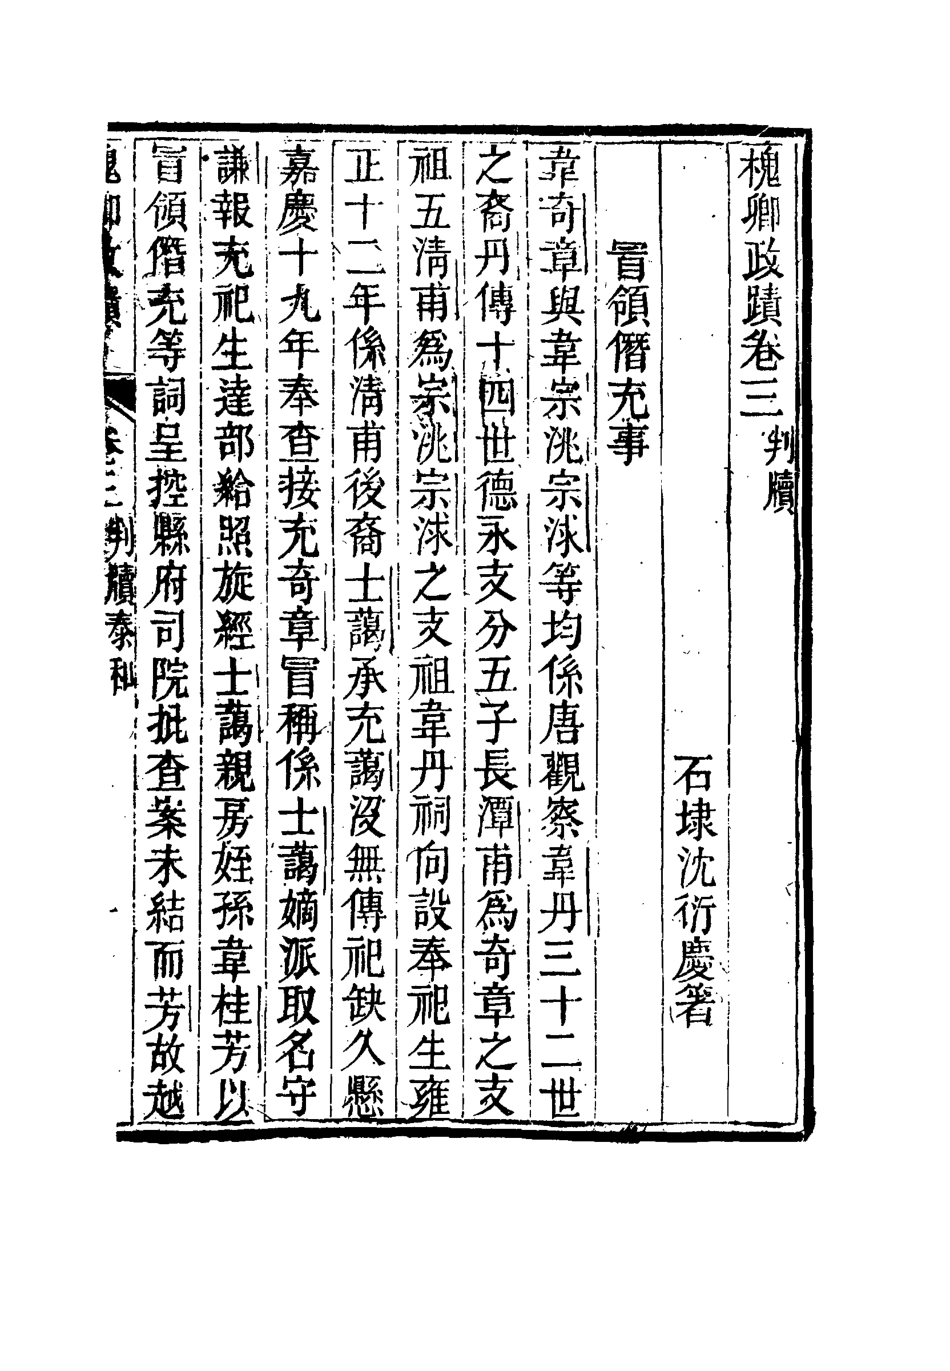 槐卿政蹟卷三 判牘
石埭沈衍慶著
冒領僭充事
韋奇章與韋宗洮宗浗等均係唐觀察韋丹三十二世
之裔丹傳十四世德永支分五子長潭甫爲奇章之支
祖五清甫爲宗洮宗浗之支祖韋丹祠向設奉祀生雍
正十二年係清甫後裔士藹承充藹沒無傳祀缺久懸
嘉慶十九年奉查接充奇章冒稱係士藹嫡派取名守
謙報充祀生達部給照旋經士藹親房姪孫韋桂芳以
冒領僭充等詞呈控縣府司院批查案未結而芳故越
槐卿政蹟 卷三 判牘泰和 一